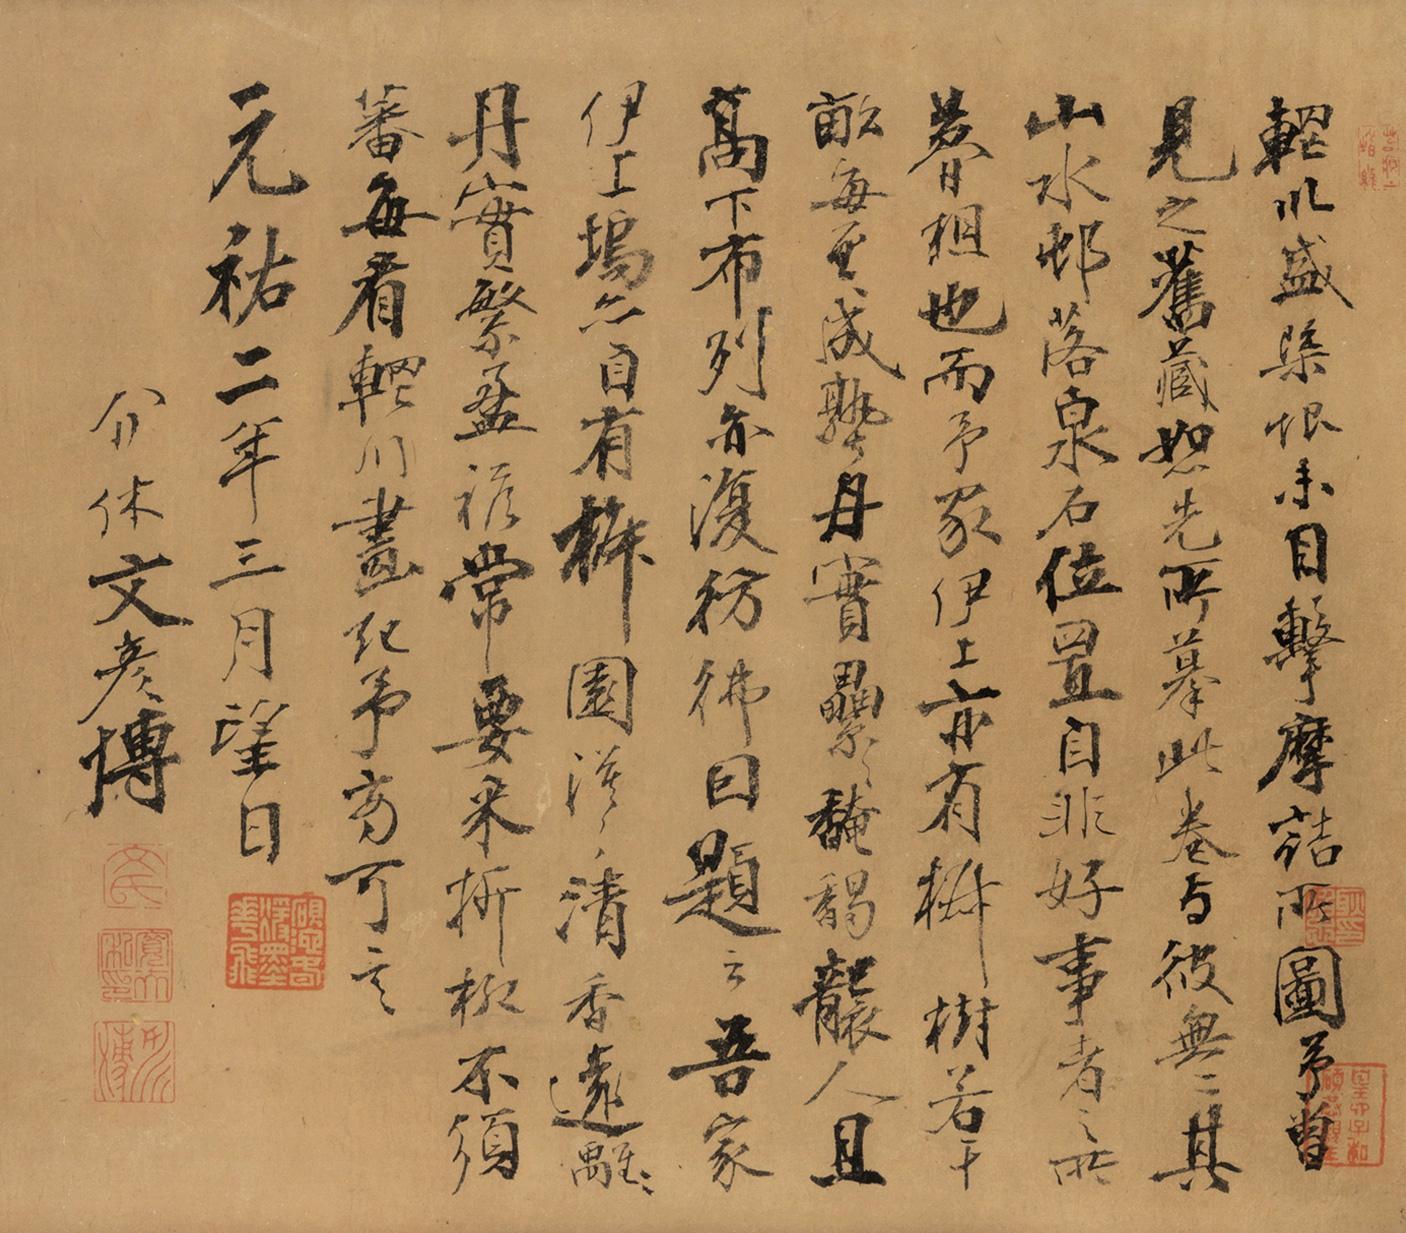 輕川盛槩恨未目擊摩詰所圖予曾
見之舊藏恕先所摹此卷与彼無二其
山水邨落泉石位置自非好事者之所
暮祖也而予家伊上亦有槲樹若干
畝每至成熟丹實纍纍馣馤襲人且
萬下布列亦復彷彿因題云吾家
伊上塢亦自有槲園漠漠清香遠離離
丹實繁盈襟常要采折椒不須
蕃每看輕川畫記予亦可之
元祐二年三月望日
介休文彥博